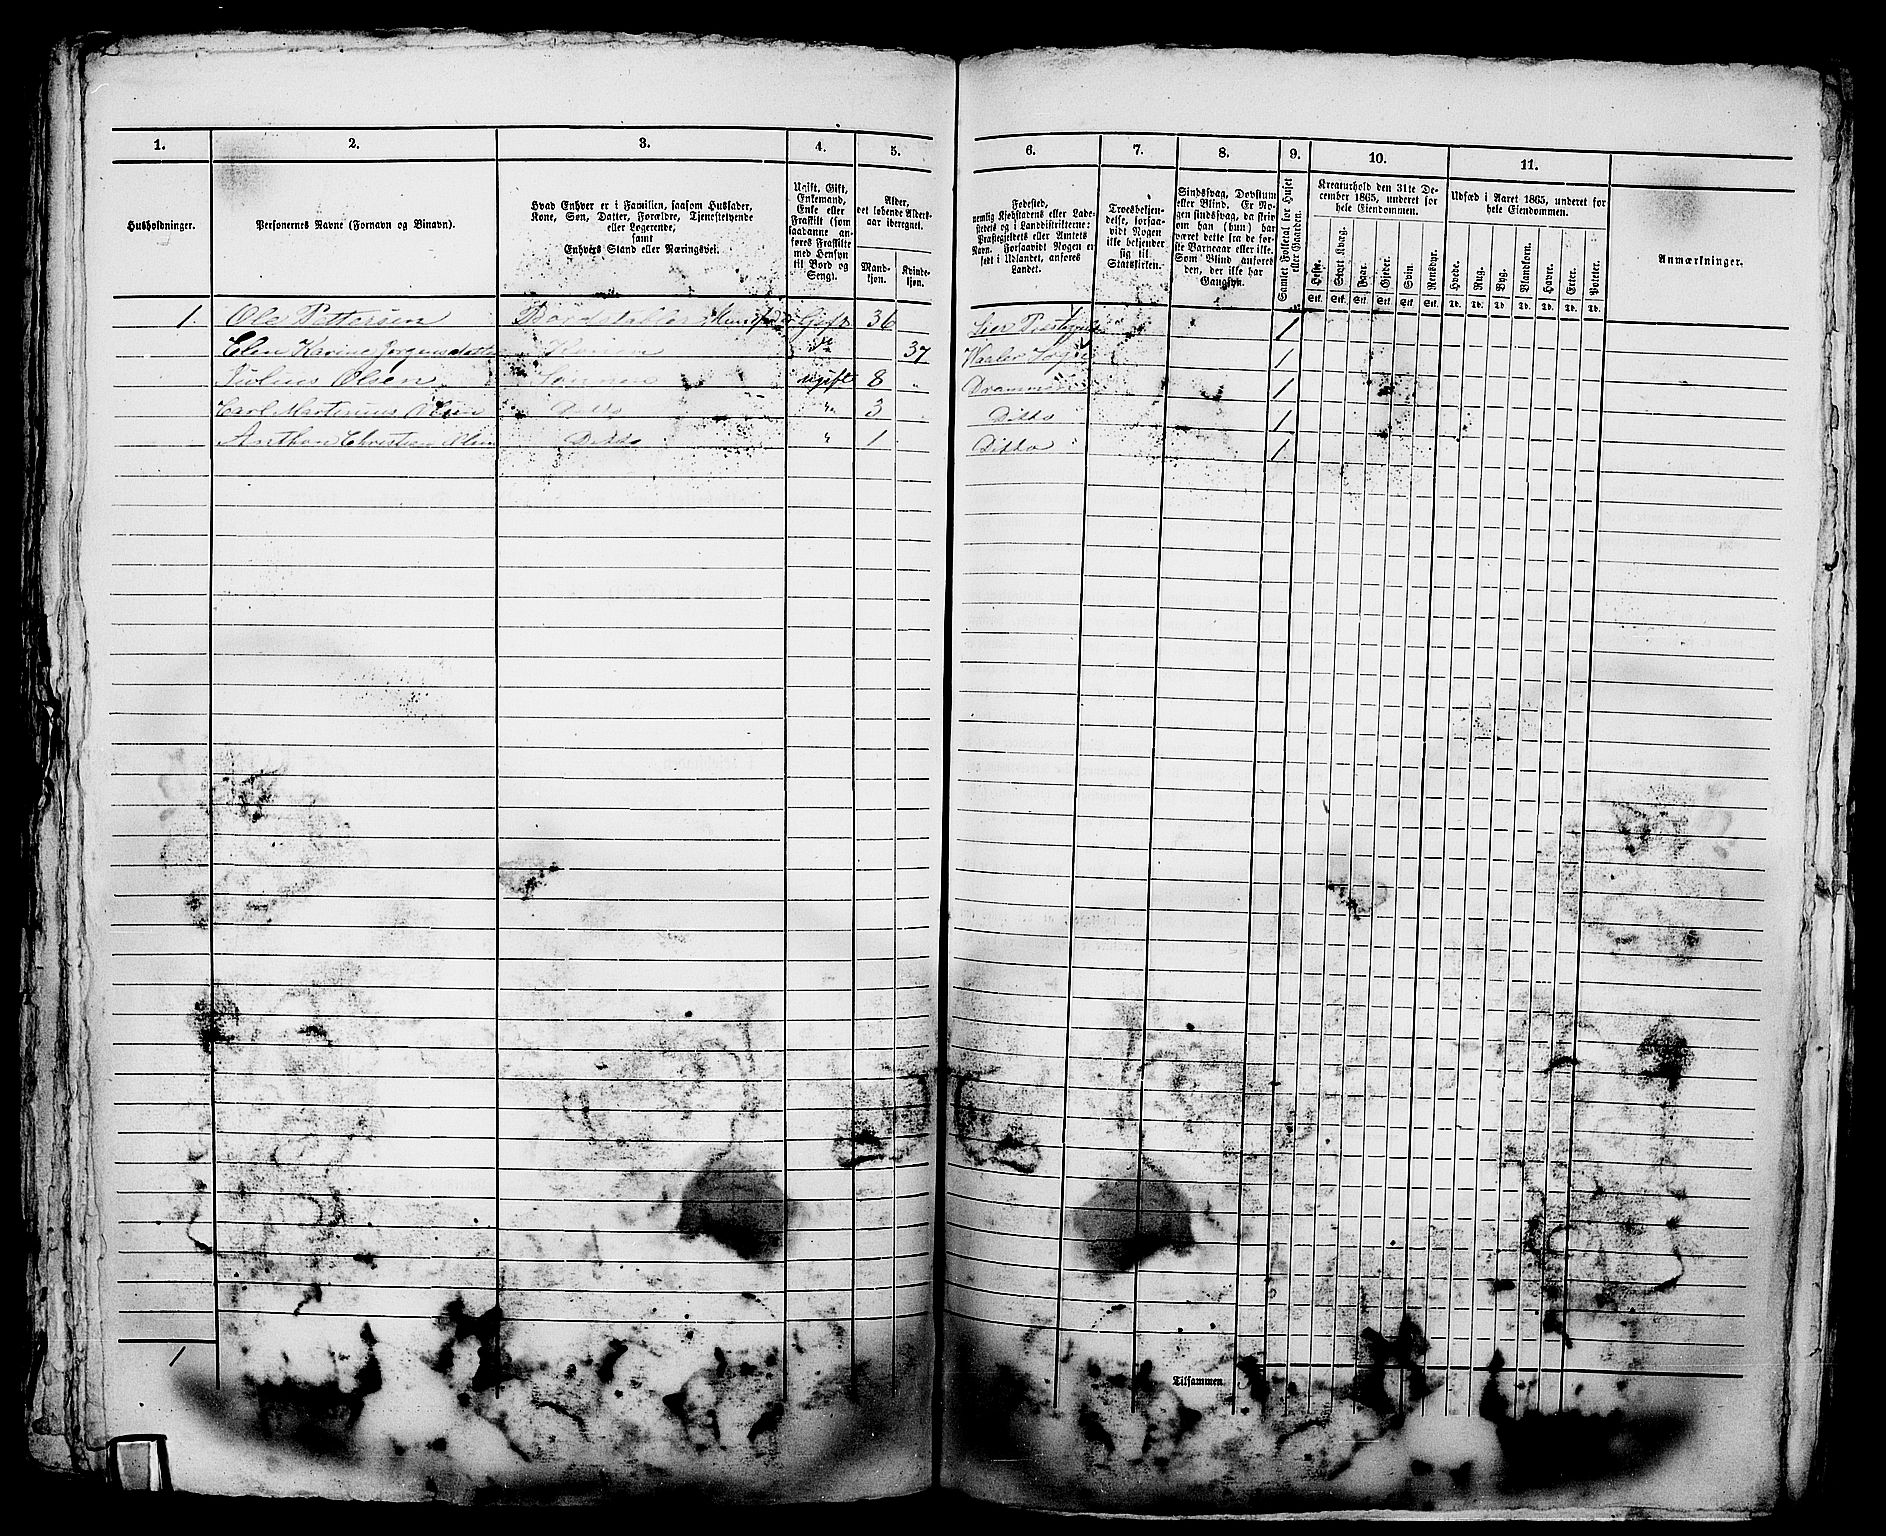 1. 2. 3. 4. 5. 6. 7. 8. 9. 10. 11.
Husholdninger.
Personernes Navne (Fornavn og Binavn).
Hvad Enhver er i Familien, saasom Husfader,
Kone, Søn, Datter, Forældre, Tjenestetyende
eller Logerende,
samt
Enhvers Stand eller Næringsvei.
Ugift, Gift,
Enkemand,
Enke eller
Fraskilt (som
saadanne an-
føres Fraskilte
med Hensyn
til Bord og
Seng).
Alder,
det løbende Alders-
aar iberegnet.
Mand-
kjøn.
Kvinde-
kjøn.
Fødested,
nemlig Kjøbstadens eller Lade-
stedets og i Landdistrikterne:
Præstegjeldets eller Amtets
Navn. Forsaavidt Nogen er
født i Udlandet, anføres
Landet.
Troesbekjen-
delse, forsaa-
vidt Nogen
ikke bekjender
sig til
Statskirken.
Sindssvag, Døvstum
eller Blind. Er No-
gen sindssvag, da skriv
om han (hun) har
været dette fra de før-
ste Barneaar eller ikke.
Som Blind anføres
den, der ikke har
Gangsyn.
Samlet Folketal for Huset
eller Gaarden.
Kreaturhold den 31te De-
cember 1865, underet for
hele Eiendommen.
Heste. Stort Kvæg. Faar. Gjeder. Svin. Rensdyr.
Stk. Stk. Stk. Stk. Stk. Stk.
Udsæd i Aaret 1865, underet for
hele Eiendommen.
Hvede. Rug. Byg. Blandkorn. Havre. Erter. Poteter.
Td. Td. Td. Td. Td. Td. Td.
Anmærkninger.
1. Ole Pettersen Bordstabler Gift 36 Lier 1
Elen Karine Jørgensdatter Konen do 37 1
Julius Olsen Sønnen ugift 8 " Drammen 1
Carl Martinius Olsen Ditto " 3 Ditto 1
Anthon Christian Olsen Ditto " 1 Ditto 1.
1
Tilsammen.